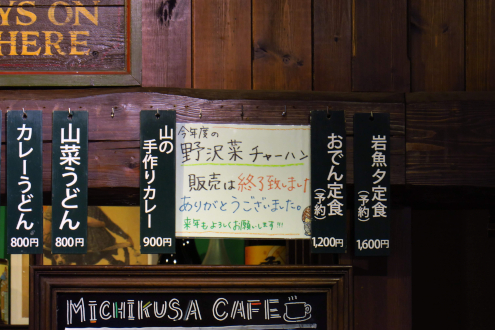 YS ON
HERE
カレーうどん
800円
山菜うどん
800円
山の
手作りカレー
900円
今年度の
野沢菜チャーハン
販売は終了致しました
ありがとうございました。
来年もよろしくお願いします!!!
おでん定食
(予約)
1,200円
岩魚夕定食
(予約)
1,600円
MiCHiKUSA CAFE